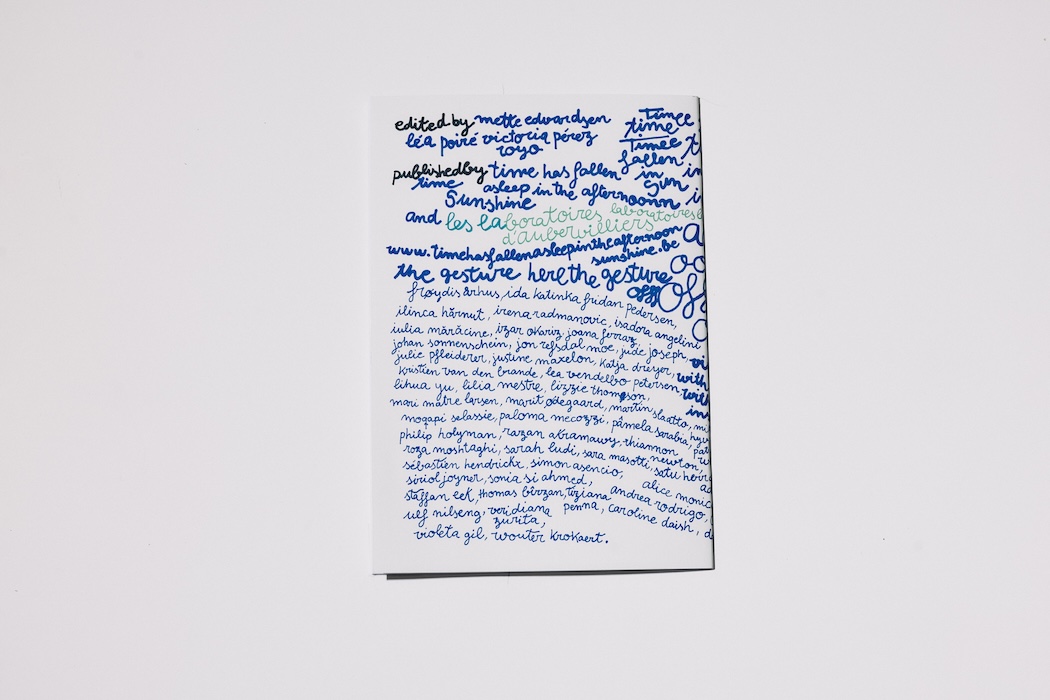 edited by mette edvardsen
léa poiré victoria pérez
royo
Timee
time
Timee t
fallen in
in
Sun
published by time has fallen
time asleep in the afternoonn
Sunshine
and les laboratoires laboratoires
d'aubervilliers
www.timehasfallenasleepintheafternoon
sunshine.be
the gesture here the gesture
off off
frøydis århus, ida katinka fridan pedersen,
ilinca hărnut, irena radmanovic, isadora angelini
iulia mărăcine, izar okariz, joana ferraz,
johan sonnenschein, jon refsdal moe, jude joseph,
julie pfleiderer, justine maxelon, katja dreyer,
kristien van den brande, lea vendelbo petersen
with
lihua yu, lilia mestre, lizzie thompson,
mari matre larsen, marit ødegaard, martin slaatto,
mogapi selassie, paloma mecozzi, pâmela sarabia,
philip holyman, razan abramawy, rhiannon newton,
roza moshtaghi, sarah ludi, sara masotti, satu
sébastien hendrickx, simon asencio,
siriol joyner, sonia si ahmed, alice
staffan eek, thomas bîrzan, tiziana andrea rodrigo,
ulf nilseng, veridiana penna, caroline daish,
zurita,
violeta gil, wouter krokaert.